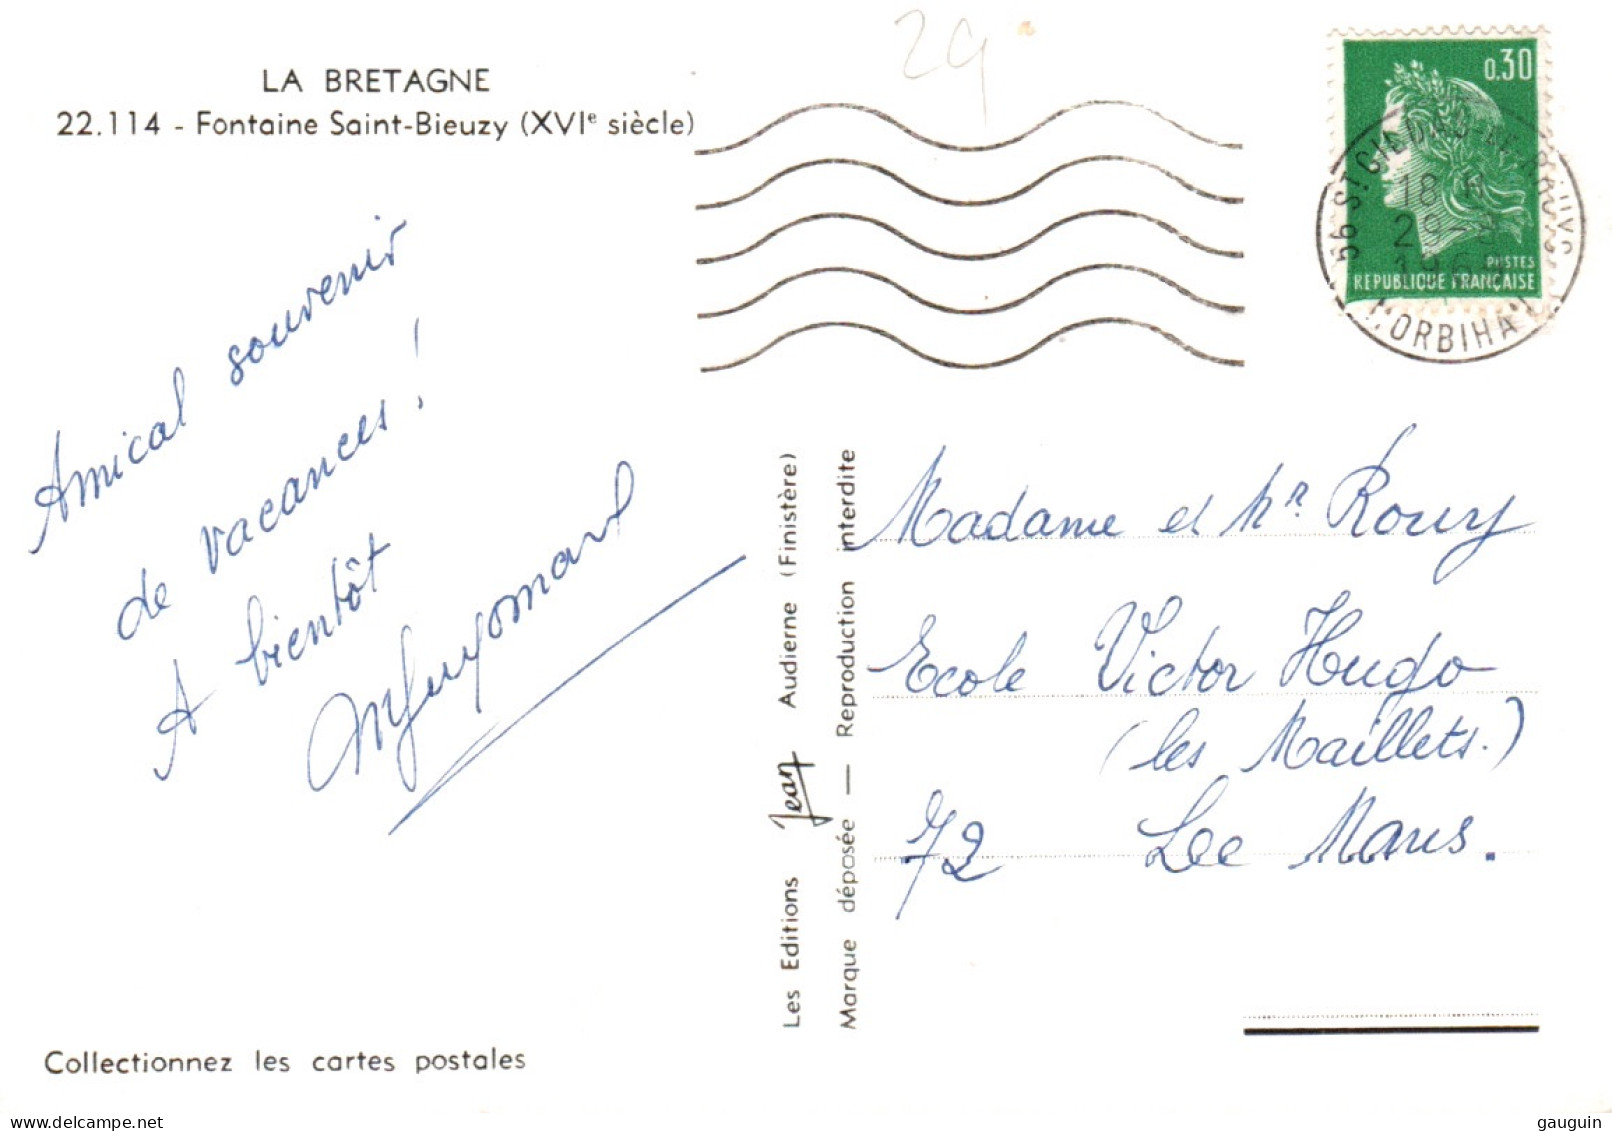 LA BRETAGNE
22.114 - Fontaine Saint-Bieuzy (XVIe siècle)
29
0.30
POSTES
REPUBLIQUE FRANÇAISE
56 ST GILDAS-DE-RHUYS
18 H
29-8
MORBIHAN
Amical souvenir
de vacances !
A bientôt
Les Editions Jean Audierne (Finistère)
Marque déposée — Reproduction interdite
Madame et Mr Rouy
Ecole Victor Hugo
(les Maillets.)
72 Le Mans.
Collectionnez les cartes postales
gauguin